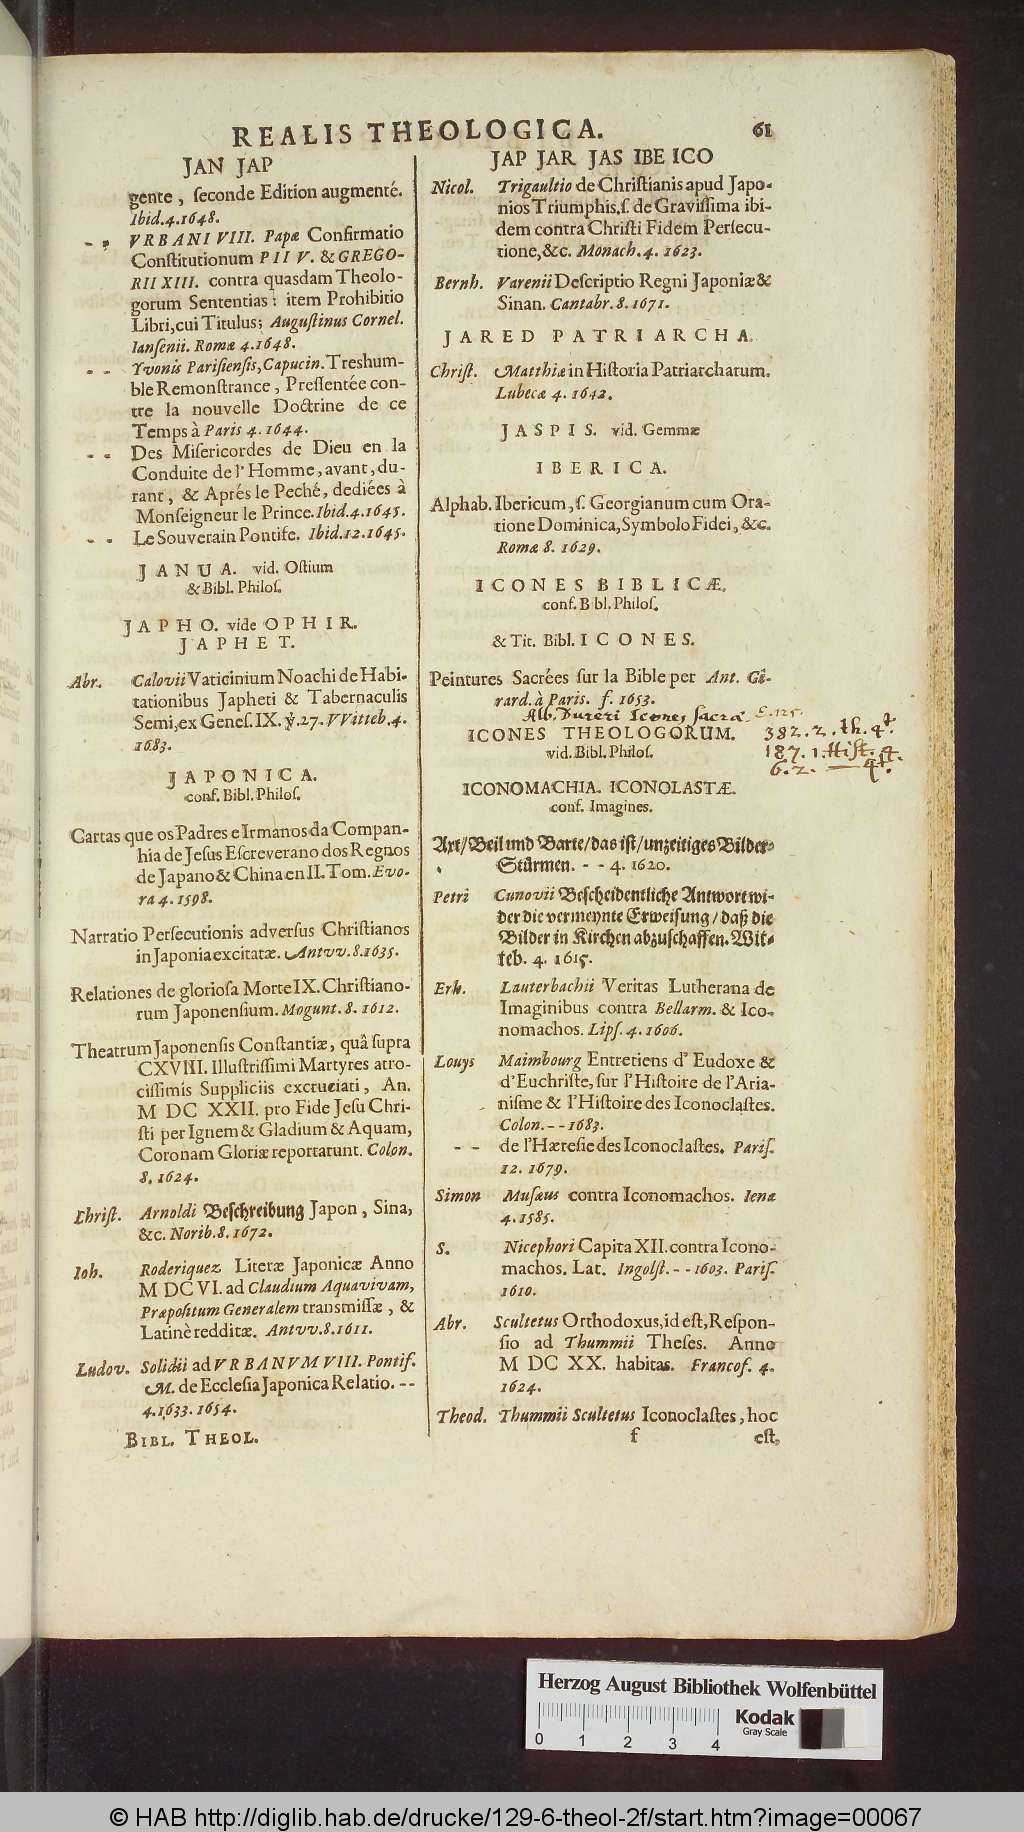 REALIS THEOLOGICA.
61
JAN JAP
gente, ſeconde Edition augmenté.
Ibid. 4. 1648.
- - VRBANI VIII. Papæ Confirmatio
Conſtitutionum PII V. & GREGO-
RII XIII. contra quasdam Theolo-
gorum Sententias: item Prohibitio
Libri, cui Titulus; Auguſtinus Cornel.
Ianſenii. Romæ 4. 1648.
- - Yvonis Pariſienſis, Capucin. Treshum-
ble Remonſtrance, Preſſentée con-
tre la nouvelle Doctrine de ce
Temps à Paris 4. 1644.
- - Des Miſericordes de Dieu en la
Conduite de l'Homme, avant, du-
rant, & Aprés le Peché, dediées à
Monſeigneur le Prince. Ibid. 4. 1645.
- - Le Souverain Pontife. Ibid. 12. 1645.
JANUA. vid. Oſtium
& Bibl. Philoſ.
JAPHO. vide OPHIR.
JAPHET.
Abr. Calovii Vaticinium Noachi de Habi-
tationibus Japheti & Tabernaculis
Semi, ex Geneſ. IX. ℣. 27. VVitteb. 4.
1683.
JAPONICA.
conf. Bibl. Philoſ.
Cartas que os Padres e Irmanos da Compan-
hia de Jesus Eſcreverano dos Regnos
de Japano & China en II. Tom. Evo-
ra 4. 1598.
Narratio Perſecutionis adverſus Chriſtianos
in Japonia excitatæ. Antvv. 8. 1635.
Relationes de glorioſa Morte IX. Chriſtiano-
rum Japonenſium. Mogunt. 8. 1612.
Theatrum Japonenſis Conſtantiæ, quâ ſupra
CXVIII. Illuſtriſſimi Martyres atro-
ciſſimis Suppliciis excruciati, An.
M DC XXII. pro Fide Jeſu Chri-
ſti per Ignem & Gladium & Aquam,
Coronam Gloriæ reportarunt. Colon.
8. 1624.
Chriſt. Arnoldi Beſchreibung Japon, Sina,
&c. Norib. 8. 1672.
Ioh. Roderiquez Literæ Japonicæ Anno
M DC VI. ad Claudium Aquavivam,
Præpoſitum Generalem transmiſſæ, &
Latinè redditæ. Antvv. 8. 1611.
Ludov. Solidii ad VRBANVM VIII. Pontif.
M. de Eccleſia Japonica Relatio. - -
4. 1633. 1654.
BIBL. THEOL.
JAP JAR JAS IBE ICO
Nicol. Trigaultio de Chriſtianis apud Japo-
nios Triumphis, ſ. de Graviſſima ibi-
dem contra Chriſti Fidem Perſecu-
tione, &c. Monach. 4. 1623.
Bernh. Varenii Deſcriptio Regni Japoniæ &
Sinan. Cantabr. 8. 1671.
JARED PATRIARCHA.
Chriſt. Matthiæ in Hiſtoria Patriarcharum.
Lubecæ 4. 1642.
JASPIS. vid. Gemmæ
IBERICA.
Alphab. Ibericum, ſ. Georgianum cum Ora-
tione Dominica, Symbolo Fidei, &c.
Romæ 8. 1629.
ICONES BIBLICÆ.
conf. Bibl. Philoſ.
& Tit. Bibl. ICONES.
Peintures Sacrées ſur la Bible per Ant. Gi-
rard. à Paris. f. 1653.
Alb. Dureri Icones sacræ
ICONES THEOLOGORUM. 382. 2. th. 4t.
vid. Bibl. Philoſ. 187. 1. Hist. 4.
6. 2. — 4t.
ICONOMACHIA. ICONOLASTÆ.
conf. Imagines.
Axt/ Beil und Barte/ das iſt/ unzeitiges Bilder-
Stürmen. - - 4. 1620.
Petri Cunovii Beſcheidentliche Antwort wi-
der die vermeynte Erweiſung/ daß die
Bilder in Kirchen abzuſchaffen. Wit-
teb. 4. 1615.
Erh. Lauterbachii Veritas Lutherana de
Imaginibus contra Bellarm. & Ico-
nomachos. Lipſ. 4. 1606.
Louys Maimbourg Entretiens d'Eudoxe &
d'Euchriſte, ſur l'Hiſtoire de l'Aria-
niſme & l'Hiſtoire des Iconoclaſtes.
Colon. - - 1683.
- - de l'Hæreſie des Iconoclaſtes. Pariſ.
12. 1679.
Simon Muſæus contra Iconomachos. Ienæ
4. 1585.
S. Nicephori Capita XII. contra Icono-
machos. Lat. Ingolſt. - - 1603. Pariſ.
1610.
Abr. Scultetus Orthodoxus, id eſt, Reſpon-
ſio ad Thummii Theſes. Anno
M DC XX. habitas. Francof. 4.
1624.
Theod. Thummii Scultetus Iconoclaſtes, hoc
f eſt,
Herzog August Bibliothek Wolfenbüttel
Kodak
Gray Scale
0 1 2 3 4
© HAB http://diglib.hab.de/drucke/129-6-theol-2f/start.htm?image=00067